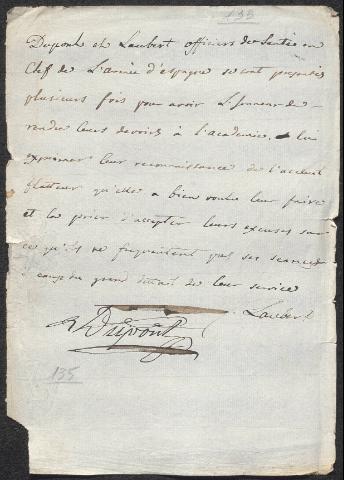 135
Dupont et Laubert officiers de Santé en
Chef de L'armée d'espagne se sont presentés
plusieurs fois pour avoir L'honneur de
rendre leurs devoirs à l'academie, lui
exprimer leur reconnaissance de l'acceuil
flatteur qu'elle a bien voulu leur faire
et la prier d'accepter leurs excuses sur
ce qu'ils ne frequentent pas ses seances
du grand détail de leur service
Laubert
Dupont
135